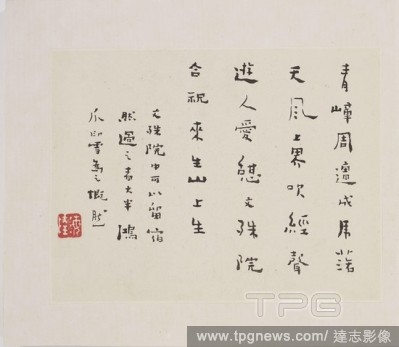 青嶂周遭成馬落
天風上界吹經聲
遊人愛憩文殊院
合祝來生山上生
文殊院中可以留宿
然過之者大半鴻
爪印雪為之慨然
TPG
www.tpgnews.com/達志影像